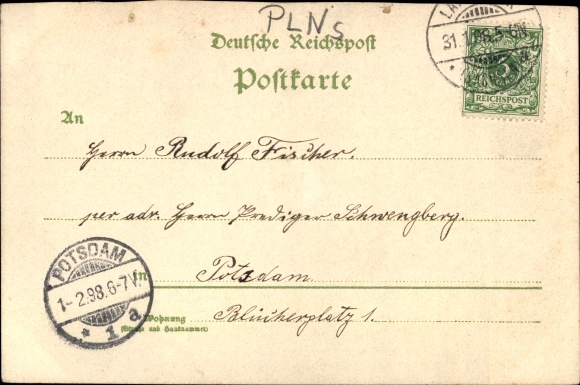 PLNs
Deutsche Reichspost
Postkarte
31.1.98.5-6N.
5
REICHSPOST
An
Herrn Rudolf Fischer.
per adr. Herrn Prediger Schwengberg.
POTSDAM
1-2.98.6-7V.
* 1 a
in Potsdam.
Wohnung
(Straße und Hausnummer)
Blücherplatz 1.